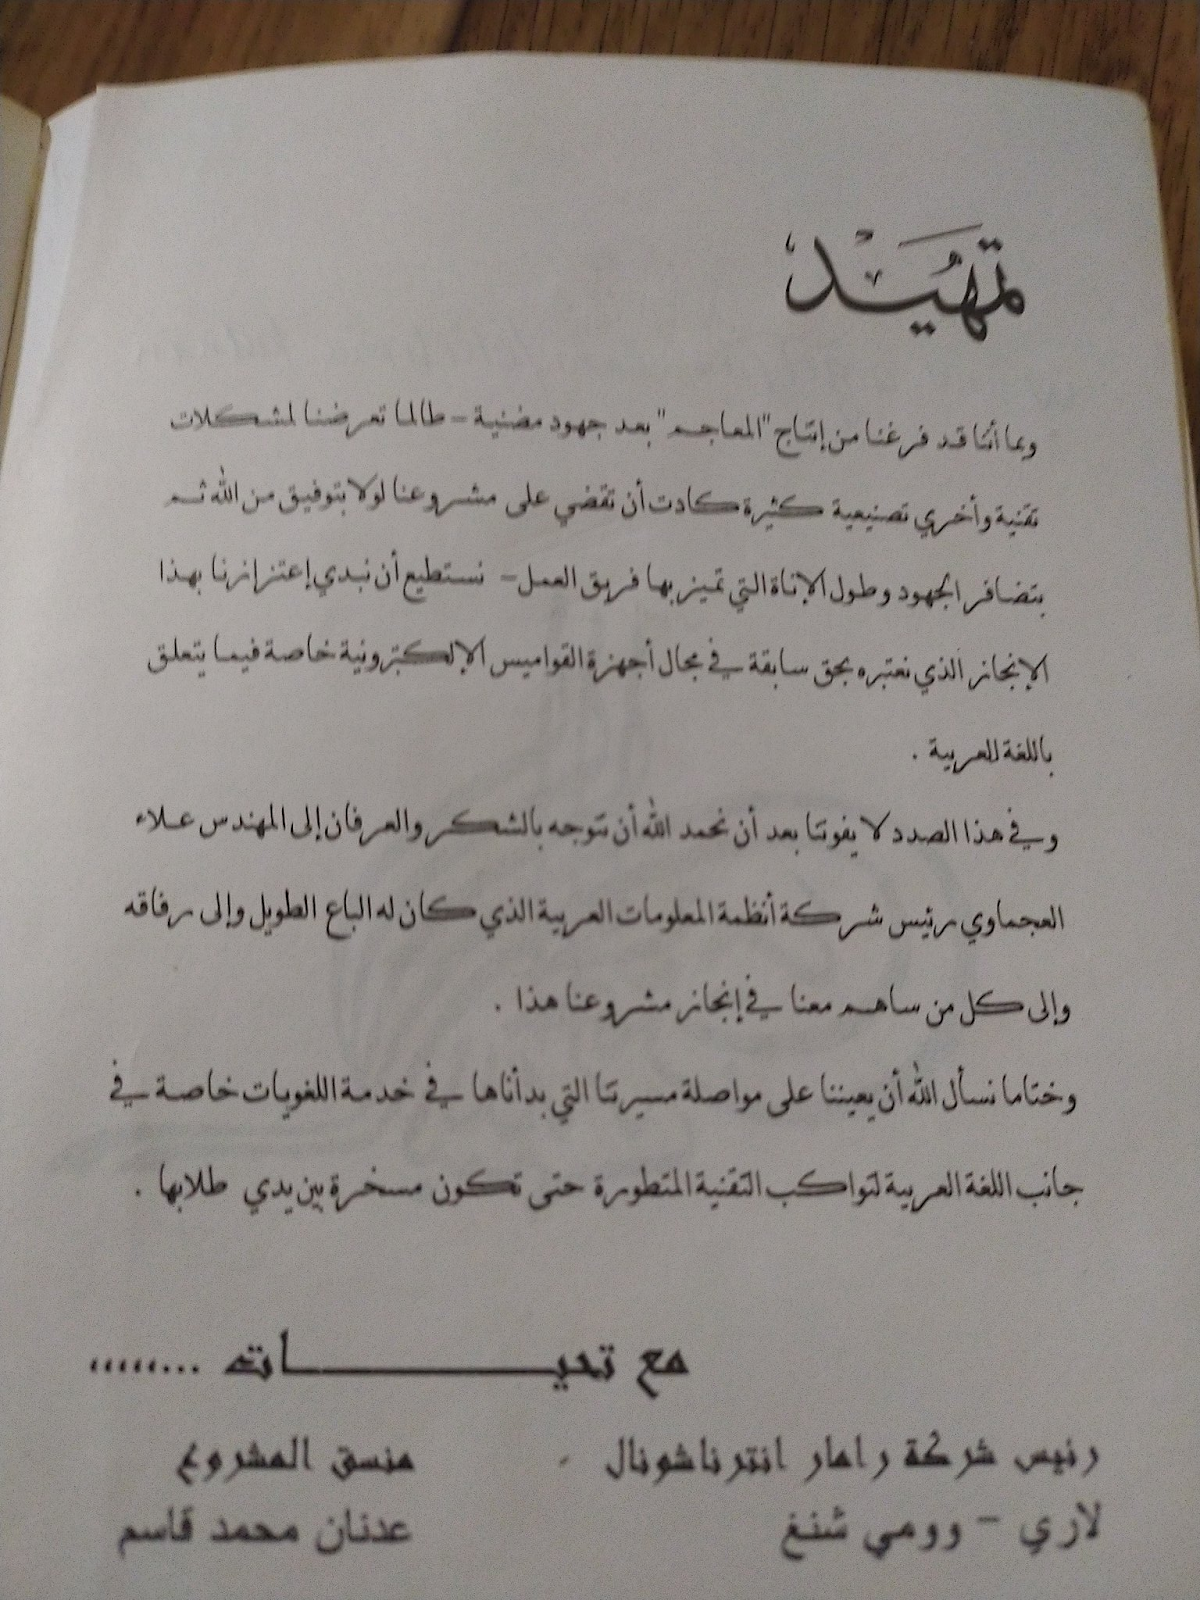 تمهيد
وبما أننا قد فرغنا من إنتاج "المعاجم" بعد جهود مضنية - طالما تعرضنا لمشكلات
تقنية وأخري تصنيعية كثيرة كادت أن تقضي على مشروعنا لولا بتوفيق من الله ثم
بتضافر الجهود وطول الإناة التي تميز بها فريق العمل - نستطيع أن نبدي إعتزازنا بهذا
الإنجاز الذي نعتبره بحق سابقة في مجال أجهزة القواميس الإلكترونية خاصة فيما يتعلق
باللغة العربية .
وفي هذا الصدد لا يفوتنا بعد أن نحمد الله أن نتوجه بالشكر والعرفان إلى المهندس علاء
العجماوي رئيس شركة أنظمة المعلومات العربية الذي كان له الباع الطويل وإلى رفاقه
وإلى كل من ساهم معنا في إنجاز مشروعنا هذا .
وختاما نسأل الله أن يعيننا على مواصلة مسيرتنا التي بدأناها في خدمة اللغويات خاصة في
جانب اللغة العربية لتواكب التقنية المتطورة حتى تكون مسخرة بين يدي طلابها .
مع تحيـــــــات .........
رئيس شركة رامار انترناشونال - منسق المشروع
لاري - وومي شنغ عدنان محمد قاسم